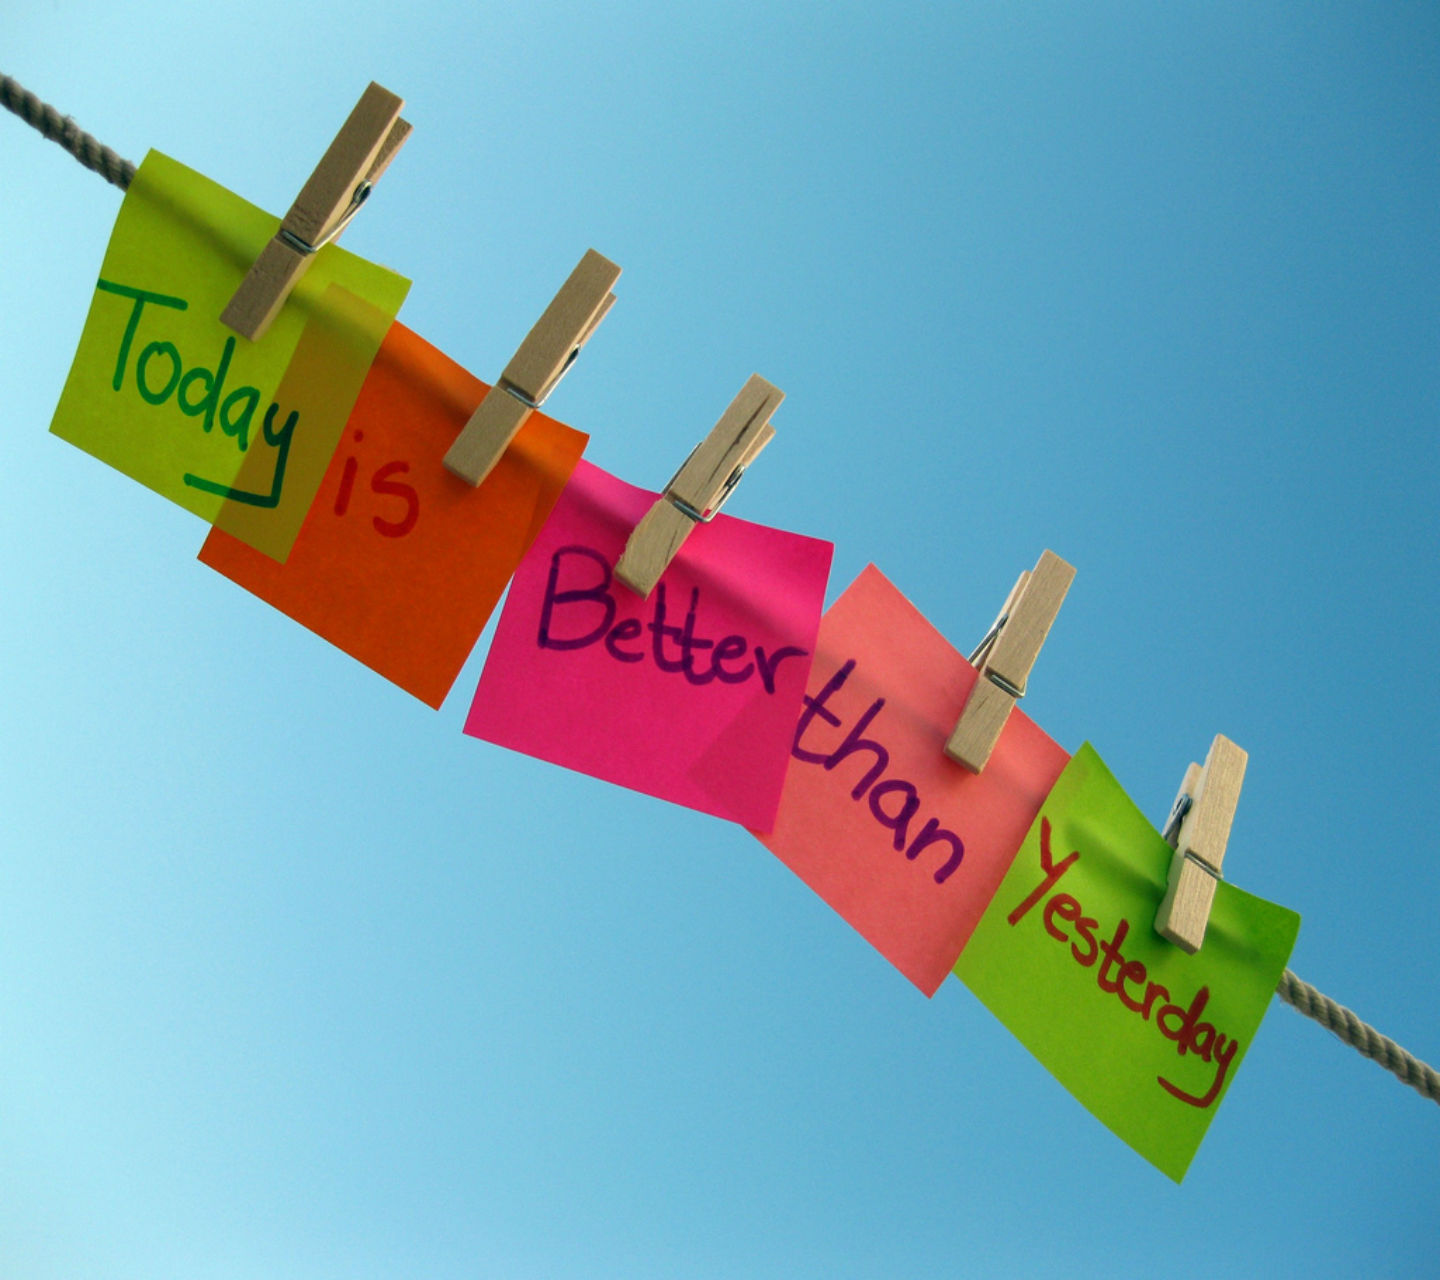 Today is Better than Yesterday